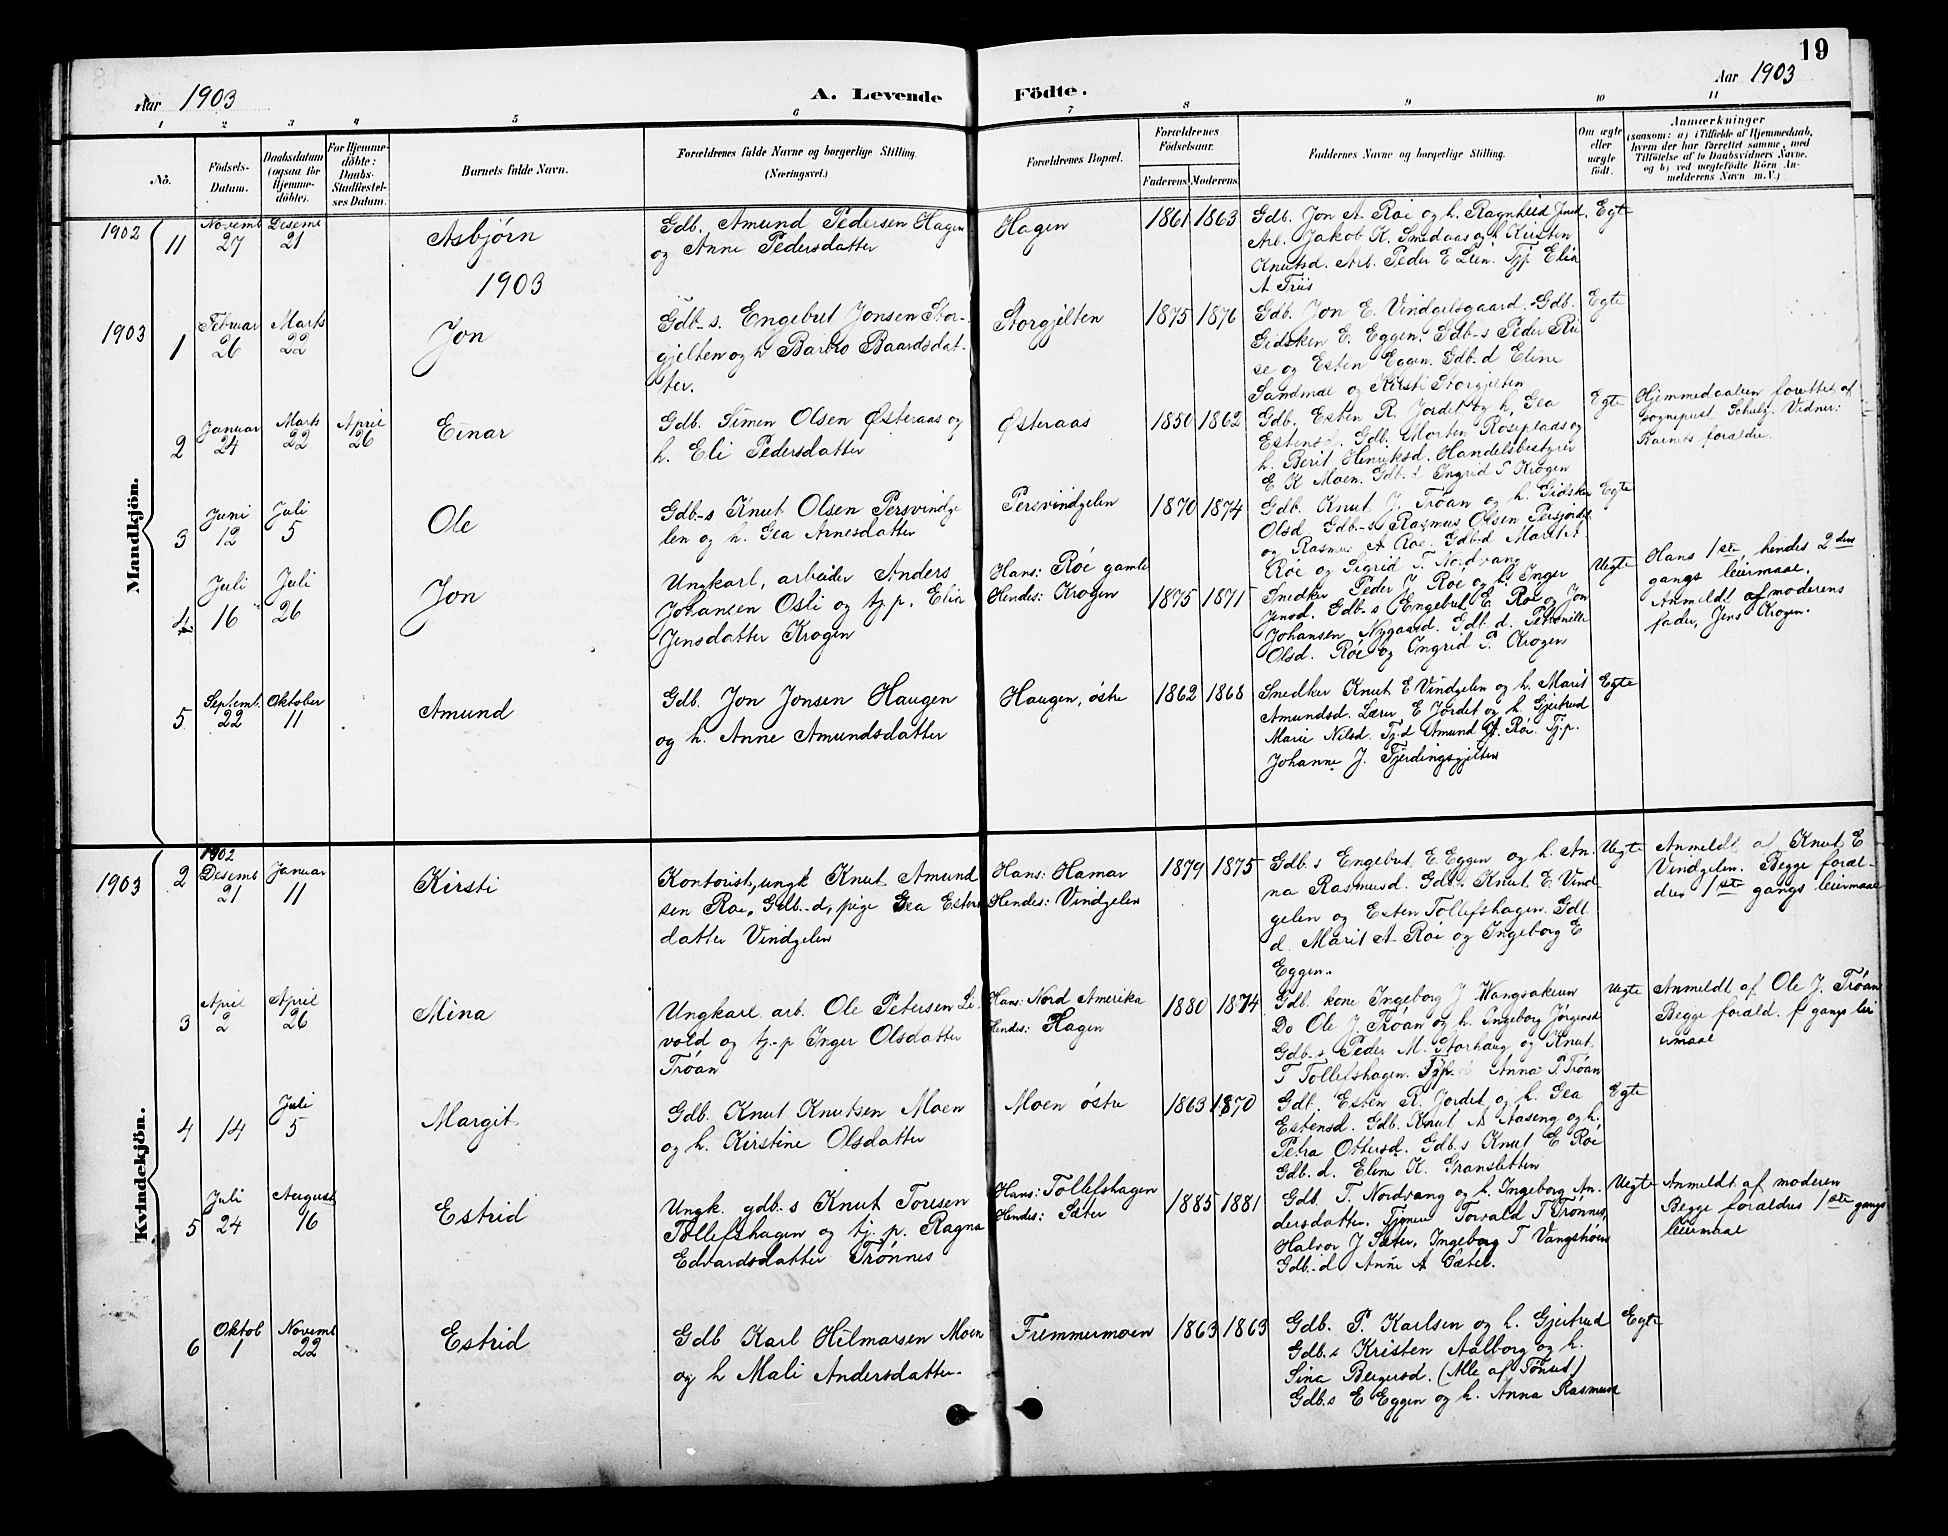 19
Aar 1903
A. Levende Födte.
Aar 1903
1 2 3 4 5 6 7 8 9 10 11
No.
Födsels-Datum.
Daabsdatum (ogsaa for Hjemme-döbte).
For Hjemme-döbte: Daabs-Stadfæstel-ses Datum.
Barnets fulde Navn.
Forældrenes fulde Navne og borgerlige Stilling. (Næringsvei.)
Forældrenes Bopæl.
Forældrenes Födselsaar.
Faderens Moderens
Faddernes Navne og borgerlige Stilling.
Om ægte eller uægte födt.
Anmærkninger
(saasom: a) i Tilfælde af Hjemmedaab,
hvem der har forrettet samme, med
Tilföielse af to Daabsvidners Navne,
og b) ved uægtefödte Börn An-
melderens Navn m. V.)
Mandkjön.
1902 11 Novemb 27 Desemb 21 Asbjörn
Gdb. Amund Pedersen Hagen
og Anne Pedersdatter
Hagen 1861 1863
Gdb. Jon A Røe og h. Ragnhild Jnsd.
Arb. Jakob K. Smedaas og h Kirsten
Knutsd. Arb. Peder E Lien. Tjp Elia
A Triis
Egte
1903
1903 1 Februar 26 Marts 22 Jon
Gdb-s. Engebret Jonsen Stor-
gjelten og h Barbro Baardsdat-
ter.
Storgjelten 1875 1876
Gdb. Jon E. Vindgelsgaard. Gdb.
Gidsken E. Eggen. Gdb-s Peder Rii
se og Esten Eggen. Gdb-d Eline
Sandmæl og Kirsti Storgjelten
Egte
2 Januar 24 Marts 22 April 26 Einar
Gdb. Simen Olsen Østeraas og
h. Eli Pedersdatter
Østeraas 1850 1862
Gdb. Esten R. Jordet og h, Gea
Estensd. Gdb. Morten Rosenplads og
h. Berit Henriksd. Handelsbestyrer
E K Moen. Gdb. d Ingrid P Krogen
Egte
Hjemmedaaben forettet af
sogneprest Schulz. Vidner:
Barnets forældre.
3 Juni 12 Juli 5 Ole
Gdb-s Knut Olsen Persvindge
len og h. Gea Arnesdatter
Persvindgelen 1870 1874
Gdb. Knut J. Trøan og h. Gidske
Olsd. Gdb-s Rasmus Olsen Persjordet
og Rasmus A Røe. Gdb-d Marit A.
Røe og Sigrid T. Nordvang
Egte
4 Juli 16 Juli 26 Jon
Ungkarl, arbeider Anders
Johansen Osli og tj.p. Elia
Jensdatter Krogen
Hans: Røe gamle
Hendes: Krogen
1875 1871
Snedker Peder J Røe og h. Inger
Jensd. Gdb-s Engebret E. Røe og Jon
Johansen Nygaard. Gdb. d. Petronille
Olsd. Røe og Ingrid P. Krogen
Uegte
Hans 1ste, hendes 2den
gangs leiermaal.
Anmeldt af moderens
fader, Jens Krogen.
5 Septemb. 22 Oktober 11 Amund
Gdb. Jon Jonsen Haugen
og h. Anne Amundsdatter
Haugen, östre 1862 1868
Snedker Knut E Vindgelen og h. Marit
Amundsd. Lærer E Jordet og h. Gjertrud
Marie Nilsd. Tj.d Amund A. Røe. Tj.p.
Johanne J. Fjerdingsgjelten
Egte
Kvindekjön.
1903 2 1902 Desemb 21 Januar 11 Kirsti
Kontorist, ungk Knut Amund
sen Røe, Gdb.-d, pige Gea Estens
datter Vindgelen
Hans: Hamar
Hendes: Vindgelen
1879 1875
Gdb. s Engebret E. Eggen og h. An-
na Rasmusd. Gdb.s Knut E Vind-
gelen og Esten Tollefshagen. Gdb.
d. Marit A Røe og Ingeborg E
Eggen.
Uegte
Anmeldt af Knut E
Vindgelen. Begge foræl-
dre 1ste gangs leiermaal
3 April 2 April 26 Mina
Ungkarl. arb. Ole Petersen Li-
vold og tj.-p Inger Olsdatter
Trøan
Hans: Nord Amerika
Hendes: Hagen
1880 1874
Gdb. kone Ingeborg J Wangsakeren
Do Ole J. Trøan og h. Ingeborg Jørgensd
Gdb-s Peder M. Storhaug og Knut
T Tollefshagen. Tjp. Anna P. Trøan
Uegte
Anmeldt af Ole J. Trøan
Begge foræld. gangs lei
ermaal
4 14 Juli 5 Margit
Gdb. Knut Knutsen Moen
og h. Kirstine Olsdatter
Moen östre 1863 1870
Gdb. Esten R. Jordet og h. Gea
Estensd. Gdb. Knut A Aaseng og h.
Petra Ottersd. Gdb.s Knut E Røe
Gdb. d. Eline K. Gransletten
Egte
5 Juli 24 August 16 Estrid
Ungk. gdb.-s Knut Toresen
Tollefshagen og tj. p. Ragna
Edvardsdatter Trønnes
Hans: Tollefshagen
Hendes: Sæter
1885 1881
Gdb. T. Nordvang og h. Ingeborg An-
dersdatter. Tjener Torvald T Trønnes,
Halvor J Sæter, Ingeborg T Vangshoen
Gdb.-d Anne A Sæter.
Uegte
Anmeldt af moderen
Begge forældres 1ste gangs
leiermaal
6 Oktob 1 Novemb 22 Estrid
Gdb Karl Hilmarsen Moen
og h Mali Andersdatter.
Fremmermoen 1863 1863
Gdb. P. Karlsen og h. Gjertrud
Gdb.s Kristen Aalborg og h.
Sina Bergersd. (Alle af Tönset)
Gdb.s E Eggen og h. Anna Rasmusd
Egte